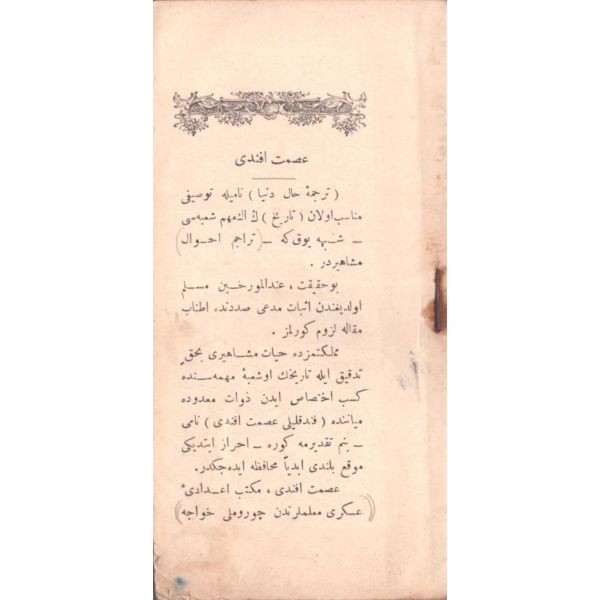 عصمت افندی
( ترجمهٔ حال دنیا ) نامیله توصیفی
مناسب اولان ( تاریخ ) ك اك مهم شعبه‌سی
ــ شبهه یوق كه ــ ( تراجم احوال
مشاهیر در .
بو حقیقت ، عندالمورخین مسلم
اولدیغندن اثبات مدعی صددنده اطناب
مقاله لزوم كورلمز .
مملكتمزده حیات مشاهیری بحقٍ
تدقیق ایله تاریخك او شعبهٔ مهمه‌سنده
كسب اختصاص ایدن ذوات معدوده
میاننده ( فندقلیلی عصمت افندی ) نامی
ــ بنم تقدیرمه كوره ــ احراز ایتدیكی
موقع بلندی ابدیاً محافظه ایده‌جكدر .
عصمت افندی ، مكتب اعدادیٔ
عسكری معلملرندن چوروملی خواجه